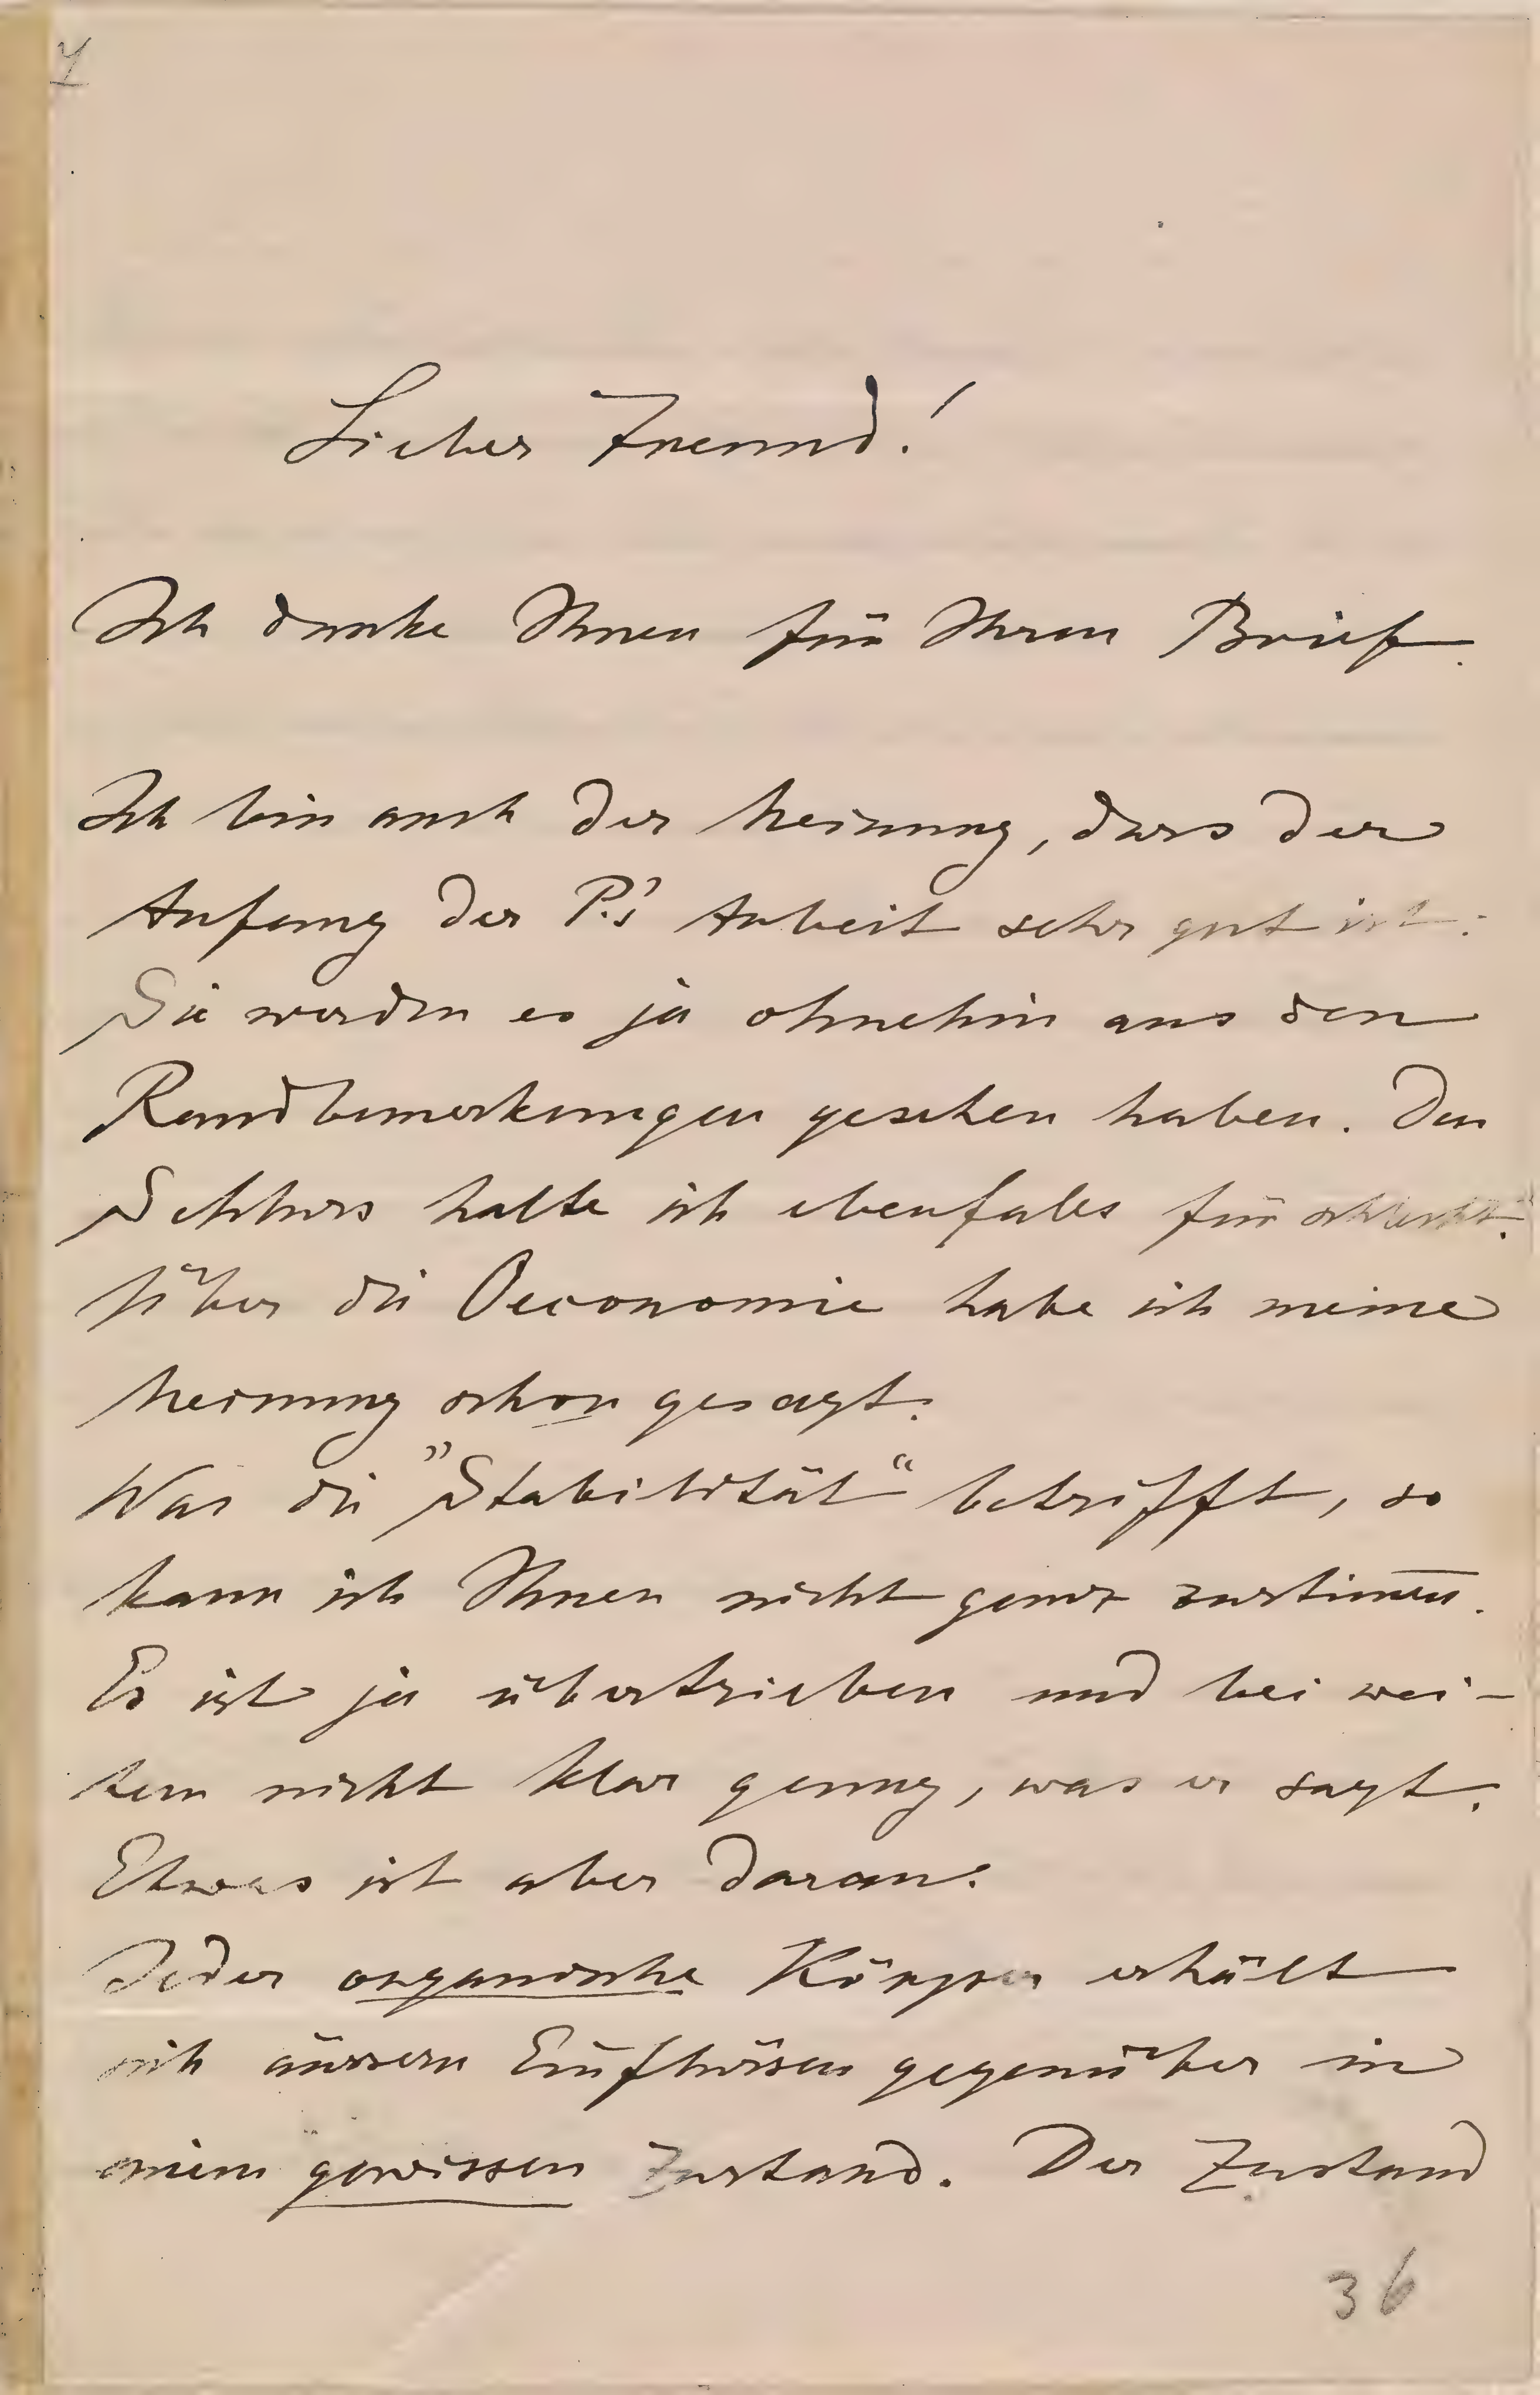 Lieber Freund!
Ich danke Ihnen für Ihren Brief.
Ich bin auch der Meinung, dass der
Anfang der P.'s Arbeit sehr gut ist.
Sie werden es ja ohnehin aus den
Randbemerkungen gesehen haben. Den
Schluss halte ich ebenfalls für schlecht.
Über die Oeconomie habe ich meine
Meinung schon gesagt.
Was die "Stabilität“ betrifft, so
kann ich Ihnen nicht ganz zustim̅en.
Es ist ja übertrieben und bei wei-
tem nicht klar genug, was er sagt.
Etwas ist aber daran.
Jeder organische Körper erhält
sich äussern Einflüssen gegenüber in
einem gewissen Zustand. Der Zustand
36